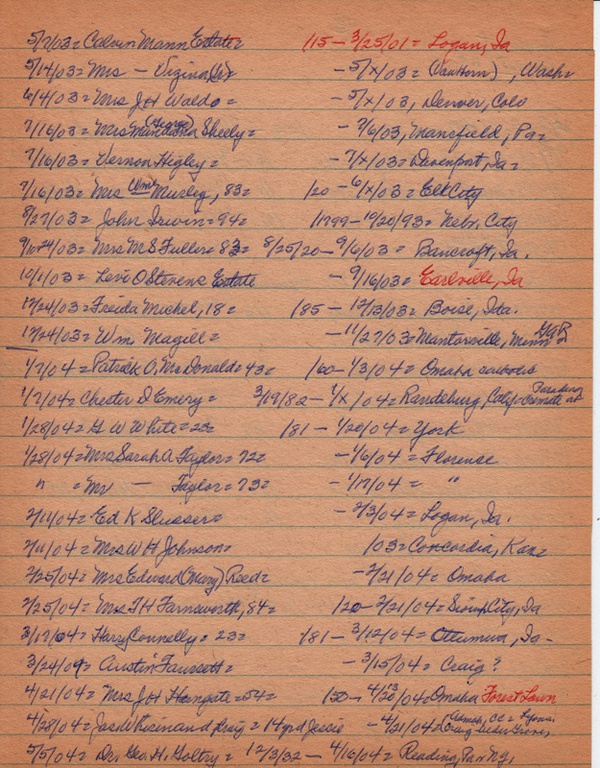 5/7/03 = Calvin Mann Estate = /15 - 3/25/01 = Logan, Ia
5/14/03 = Mrs — Virginia - 5/x/03 = (VanHorn), Wash =
6/4/03 = Mrs J H Waldo = - 5/x/03, Denver, Colo
7/16/03 = Mrs (George) Sheely = - 7/6/03, Mansfield, Pa =
7/16/03 = Vernon Higley = - 7/x/03 = Davenport, Ia =
7/16/03 = Mrs Wm Musley, 83 = /20 - 6/x/03 = Elk City
8/27/03 = John Irwin = 94 = 1799 - 10/20/93 = Nebr. City
9/10+24/03 = Mrs M S Fuller = 83 = 8/25/20 - 9/6/03 = Bancroft, Ia.
10/1/03 = Levi O Stevens Estate - 9/16/03 = Earlville, Ia
12/24/03 = Freida Michel, 18 = /85 - 12/13/03 = Boise, Ida.
12/24/03 = Wm. Magill = - 11/27/03 = Mantorville, Minn = GAR
1/7/04 = Patrick O. McDonald = 43 = /60 - 1/3/04 = Omaha
1/7/04 = Chester D Emery = 3/19/82 - 1/x/04 = Randsburg, Calif = Cremate at Pasadena
1/28/04 = G W White = 23 = /81 - 1/20/04 = York
1/28/04 = Mrs Sarah A Taylor = 72 = - 1/6/04 = Florence
" = Mr — Taylor = 73 = - 1/17/04 = "
2/11/04 = Ed K Slusser = - 2/3/04 = Logan, Ia.
2/11/04 = Mrs W H Johnson = /03 = Concordia, Kan =
2/25/04 = Mrs Edward (Mary) Reed = - 2/21/04 = Omaha
2/25/04 = Mrs T H Farnsworth, 84 = /20 - 2/21/04 = Sioux City, Ia
3/17/04 = Harry Connelly = 23 = /81 - 3/12/04 = Ottumwa, Ia -
3/24/04 = Austin Faussett = - 3/15/04 = Craig?
4/21/04 = Mrs J H Hungate = 54 = /50 - 4/20/04 = Omaha Forest Lawn
4/28/04 = Craig = 14 yrd Jessie - 4/21/04 = Craig
5/5/04 = Dr. Geo. H. Goltry = 12/3/32 - 4/16/04 = Reading,